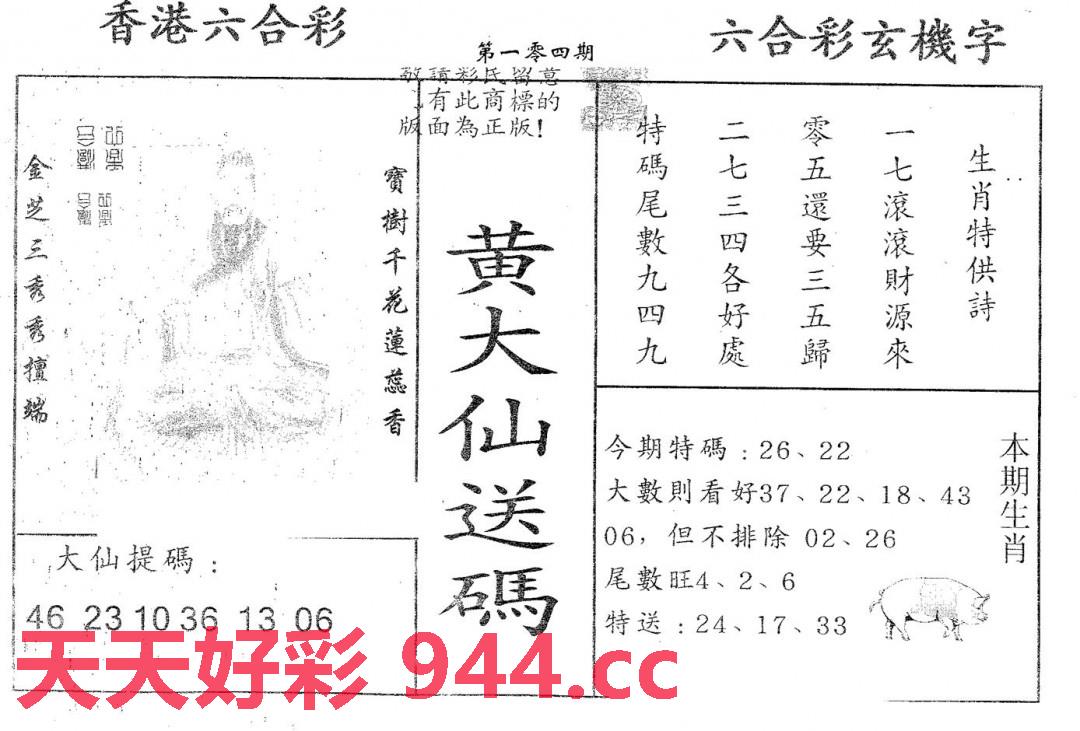 香港六合彩
第一零四期
六合彩玄機字
敬請彩民留意
有此商標的
版面為正版!
金芝三秀秀擅端
寶樹千花蓮蕊香
黄大仙送碼
生肖特供詩
一七滾滾財源來
零五還要三五歸
二七三四各好處
特碼尾數九四九
本期生肖
今期特碼:26、22
大數則看好37、22、18、43
06,但不排除 02、26
尾數旺4、2、6
特送:24、17、33
大仙提碼:
46 23 10 36 13 06
天天好彩 944.cc